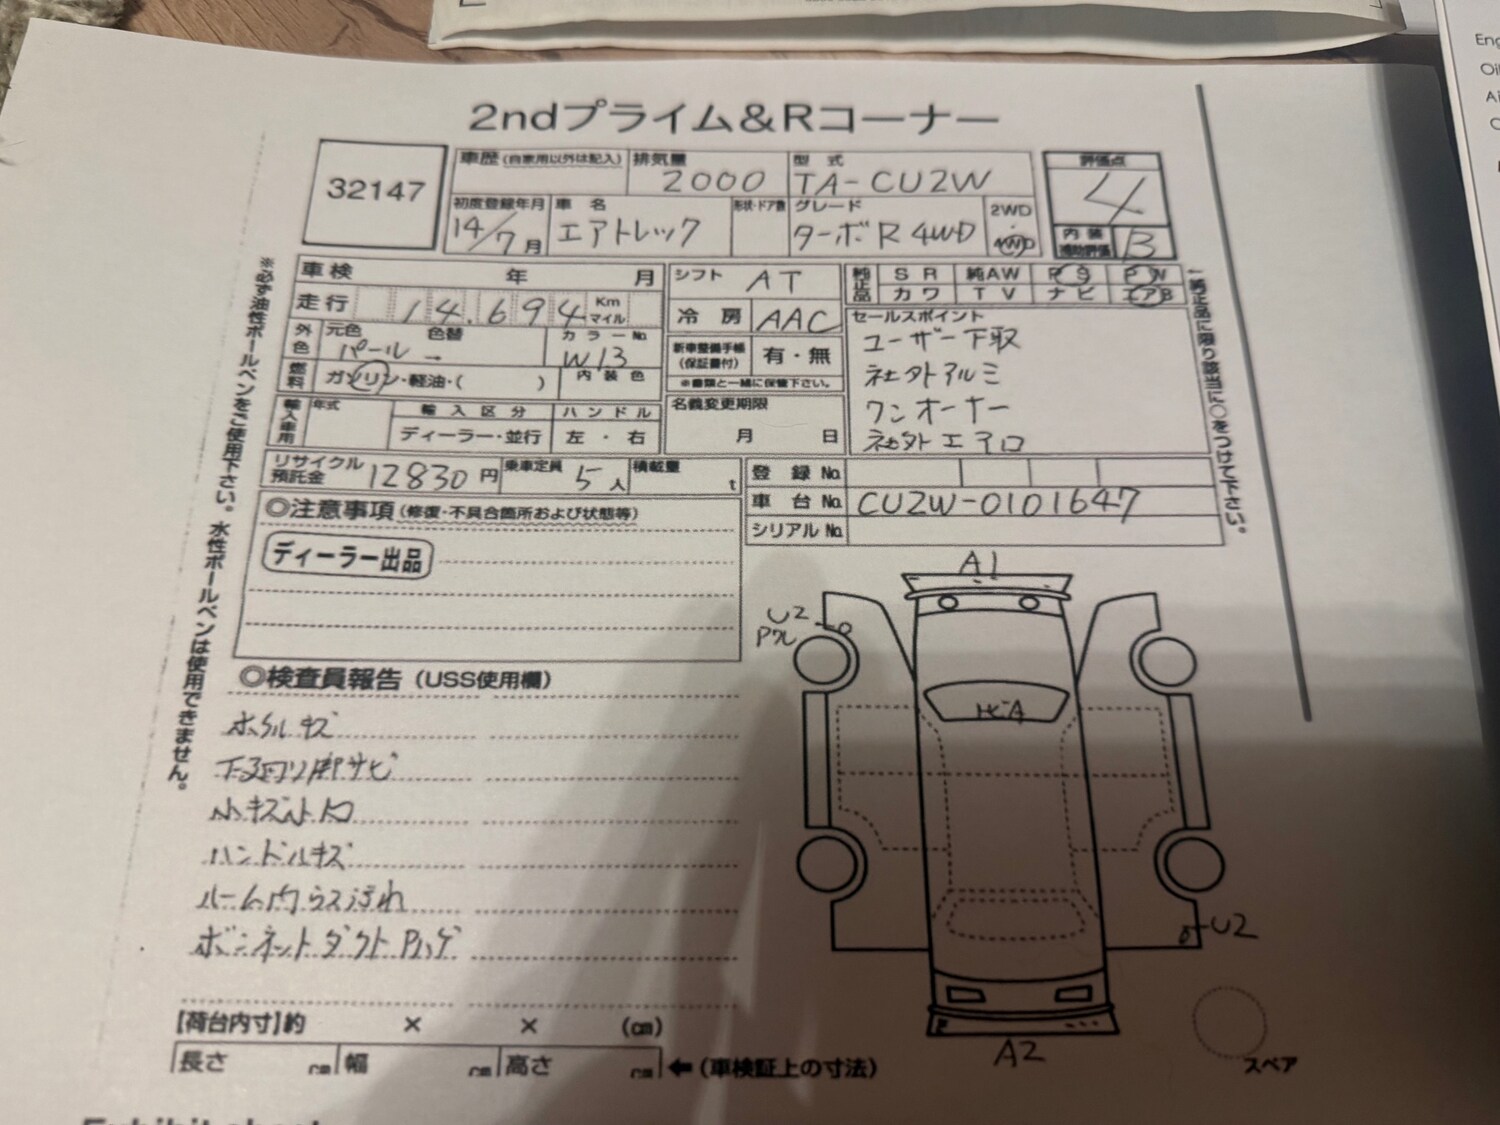 2ndプライム&Rコーナー
32147
車歴(自家用以外は記入)
排気量
2000
型式
TA-CU2W
評価点
4
初度登録年月
14/7月
車名
エアトレック
形状・ドア数
グレード
ターボR 4WD
2WD
4WD
内装
補助評価
B
※必ず油性ボールペンをご使用下さい。水性ボールペンは使用できません。
車検 年 月
シフト
AT
純正品
SR 純AW PS PW
カワ TV ナビ エアB
純正品に限り該当に○をつけて下さい。
走行
14.694
Km
マイル
冷房
AAC
セールスポイント
ユーザー下取
社外アルミ
ワンオーナー
社外エアロ
外色
元色
パール
色替
→
カラーNo
W13
新車整備手帳
(保証書付)
有・無
※書類と一緒に保管下さい。
燃料
ガソリン・軽油・( )
内装色
名義変更期限
月 日
輸入車用
年式
輸入区分
ディーラー・並行
ハンドル
左・右
リサイクル
預託金
12830円
乗車定員
5人
積載量
t
登録No.
車台No.
CU2W-0101647
シリアルNo.
◎注意事項(修復・不具合箇所および状態等)
ディーラー出品
◎検査員報告(USS使用欄)
ホイルキズ
下廻り
サビ
小キズ
ハンドルキズ
ルーム内うス汚れ
ボンネットダクトPハゲ
A1
U2
U2
A2
スペア
【荷台内寸】約 × × (cm)
長さ cm 幅 cm 高さ cm ←(車検証上の寸法)